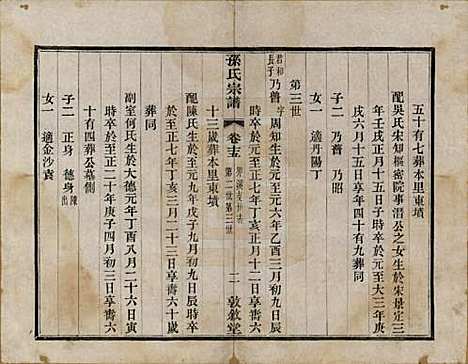 五十有七葬本里東墳
配吳氏宋知樞密院事潛公之女生於宋景定三
年壬戌十月十五日子時卒於元至大三年庚
戌六月十五日享年四十有九葬同
子二 乃普 乃昭
女一 適丹陽丁
第三世
君和長子乃普字周知生於元至元六年乙酉三月初九日辰
時卒於元至正七年丁亥正月十二日享耆六
孫氏宗譜 卷十五 第二世第三世 二 敦敘堂
十三歲葬本里東墳
配陳氏生於元至元年戊子九月初九日辰時卒
於至正七年丁亥三月二十三日享耆六十歲
葬同
副室何氏生於大德元年丁酉八月二十六日寅
時卒於至正二十年庚子四月初三日享耆六
十有四葬公墓側
子二 正身 德身陳出
女一 適金沙袁